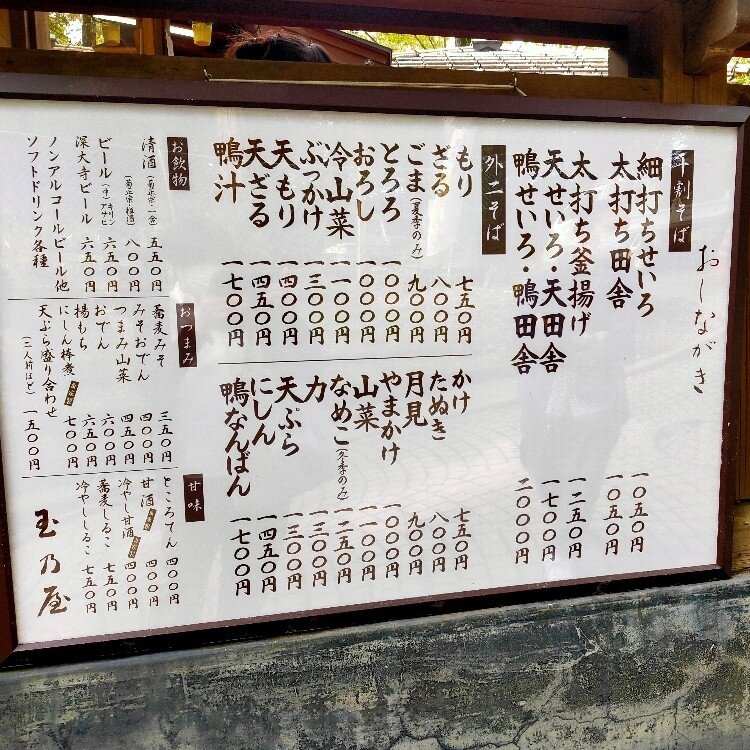 おしながき
十割そば
細打ちせいろ 一〇五〇円
太打ち田舎 一〇五〇円
太打ち釜揚げ 一二五〇円
天せいろ・天田舎 一七〇〇円
鴨せいろ・鴨田舎 二〇〇〇円
外二そば
もり 七五〇円
ざる 八〇〇円
ごま(夏季のみ) 九〇〇円
とろろ 一〇〇〇円
おろし 一〇〇〇円
冷山菜 一一〇〇円
ぶっかけ 一三〇〇円
天もり 一三〇〇円
天ざる 一四五〇円
鴨汁 一七〇〇円
かけ 七五〇円
たぬき 八〇〇円
月見 九〇〇円
やまかけ 一〇〇〇円
山菜 一一〇〇円
なめこ(冬季のみ) 一二五〇円
力 一三〇〇円
天ぷら 一三〇〇円
にしん 一四五〇円
鴨なんばん 一七〇〇円
お飲物
清酒(菊正宗・一合) 五五〇円
(菊正宗・樽酒) 八〇〇円
ビール(中)キリン アサヒ 六五〇円
深大寺ビール 六五〇円
ノンアルコールビール他
ソフトドリンク各種
おつまみ
蕎麦みそ 三五〇円
みそおでん 四〇〇円
つまみ山菜 四五〇円
おでん 六〇〇円
揚もち 六五〇円
にしん棒煮 七〇〇円
天ぷら盛り合わせ
(二人前ほど) 一五〇〇円
甘味
ところてん 四〇〇円
甘酒 四〇〇円
冷やし甘酒 四〇〇円
蕎麦しるこ 七五〇円
冷やししるこ 七五〇円
玉乃屋